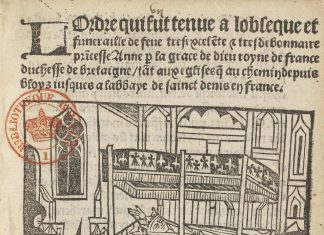 LOrdre qui fut tenue a lobseque et
funeraille de feue tresexcelēte & tresdebonnaire
pricesse Anne p la grace de dieu royne de france
duchesse de bretaigne / tāt aux eglises q̄ au chemin depuis
bloys iusques a labbaye de sainct denis en france.
BIBLIOTHEQUE